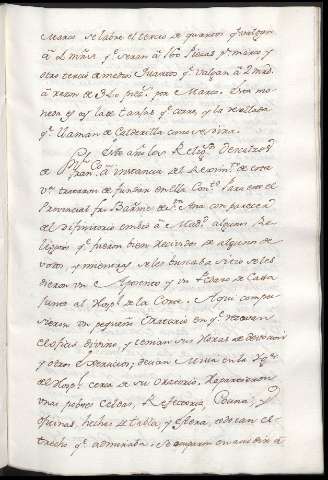 Marco se labre el tercio de quartos q.e valgan
â 4 mrs. q.e seran â 160 Piezas p.r marco, y
otro tercio de medios Quartos q.e valgan â 2 mrs.
â razon de 320 piez.s por Marco. Esta mo
neda es la de tanto q.e corre, y la resellada
q.e llaman de Calderilla como se dira.
Este año los Relig.s Descalzos
de S.n Fran.co â instancia del Regim.to de esta
V.a trataron de fundar en ella Con.to Para esto el
Provincial fr. Bar.me de S.ta Ana con parecer
del Difinitorio embio â Mad.d algunos Re
ligiosos q.e fueron bien recividos de algunos de
votos, y mientras se les buscaba sitio se les
dieron un Aposento y un pedazo de Casa
junto al Hosp.l de la Corte. Aqui compu
sieron un pequeño Oratorio en q.e rezavan
el oficio divino, y tenian sus horas de devocion
y otros exercicios; decian Missa en la Ig.a
del Hosp.l cerca de su Oratorio. Repartieron
unas pobres Celdas, Refectorio, Cocina, y
oficinas, hechas de tabla, y estera, todo tan es-
trecho q.e admiraba. Se ocuparon en acudir â